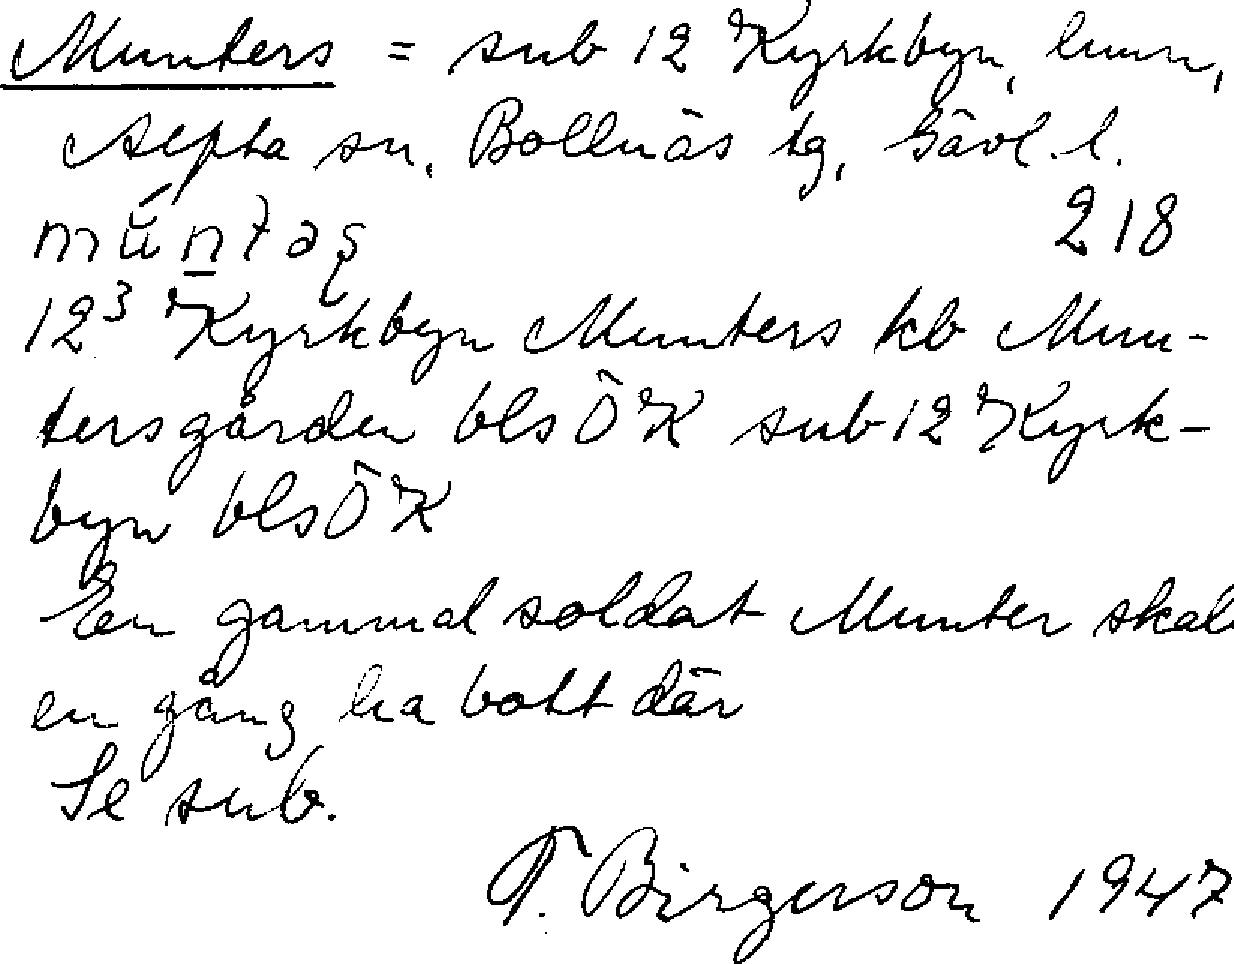 Munters = sub 12 Kyrkbyn, hmn,
Alfta sn, Bollnäs tg, Gävl. l.
mún̲təʂ 218
12³ Kyrkbyn Munters kb Mun-
tersgården bls ÖK sub 12 Kyrk-
byn bls ÖK
En gammal soldat Munter skall
en gång ha bott där
Se sub.
T. Birgerson 1947